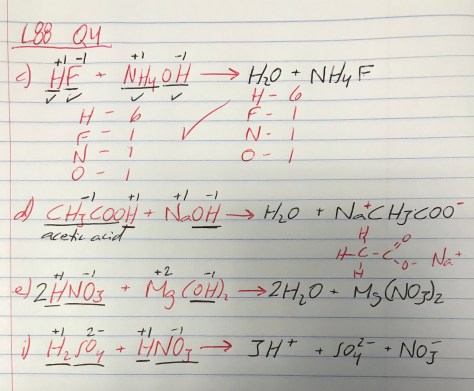 L88 Q4
c) H⁺¹F⁻¹ + NH₄⁺¹OH⁻¹ → H₂O + NH₄F
H - 6 H - 6
F - 1 ✓ F - 1
N - 1 N - 1
O - 1 O - 1
d) CH₃⁻¹COOH⁺¹ + Na⁺¹OH⁻¹ → H₂O + Na⁺CH₃COO⁻
acetic acid
H
H-C-C O O⁻ Na⁺
H
e) 2H⁺¹NO₃⁻¹ + Mg⁺²(OH)₂⁻¹ → 2H₂O + Mg(NO₃)₂
i) H₂⁺¹SO₄²⁻ + H⁺¹NO₃⁻¹ → 3H⁺ + SO₄²⁻ + NO₃⁻